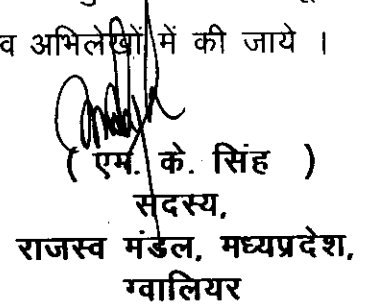 व अभिलेखों में की जाये ।
( एम. के. सिंह )
सदस्य,
राजस्व मंडल, मध्यप्रदेश,
ग्वालियर